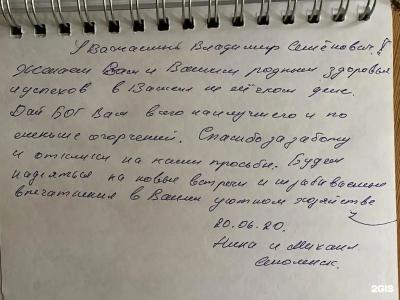 Уважаемый Владимир Семёнович!
Желаем Вам и Вашим родным здоровья
и успехов в Вашем не лёгком деле.
Дай БОГ Вам всего наилучшего и по
меньше огорчений. Спасибо за заботу
и отклики на наши просьбы. Будем
надеяться на новые встречи и незабываемые
впечатления в Вашем уютном хозяйстве
20.06.20.
Нина и Михаил.
Смоленск.
2GIS